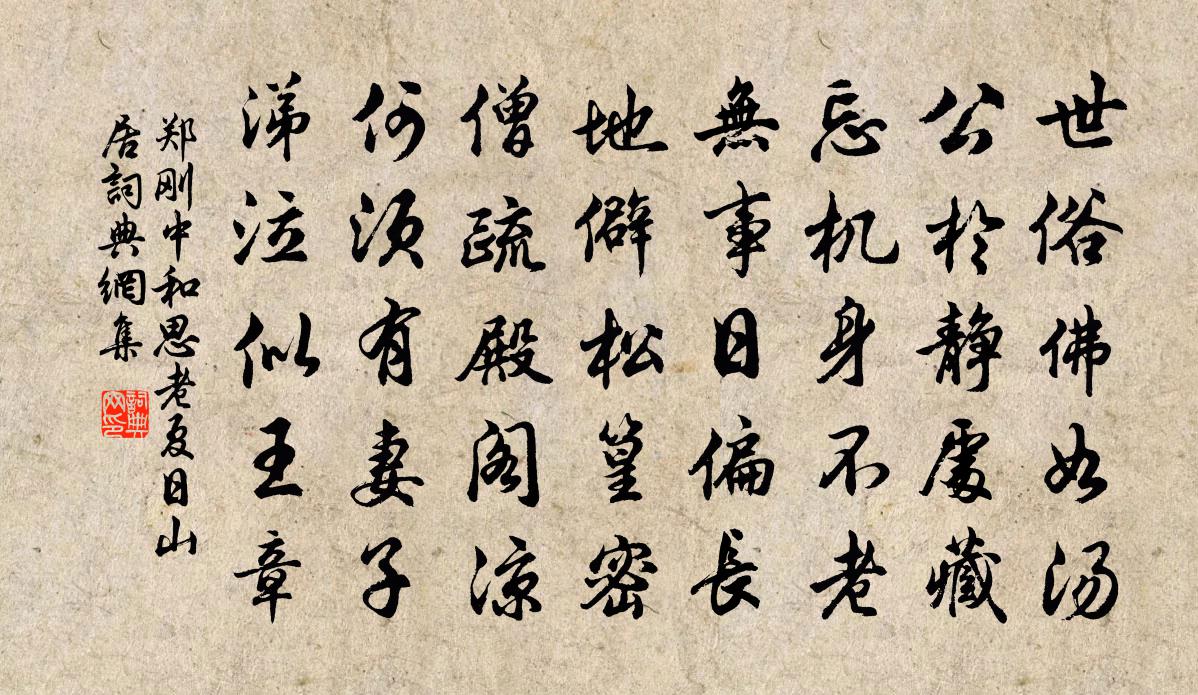 世俗佛如汤
公於静處藏
忘机身不老
無事日偏長
地僻松篁密
僧疏殿阁涼
何须有妻子
涕泣似王章
郑刚中和思老夏日山
居詞典網集
詞典
网印